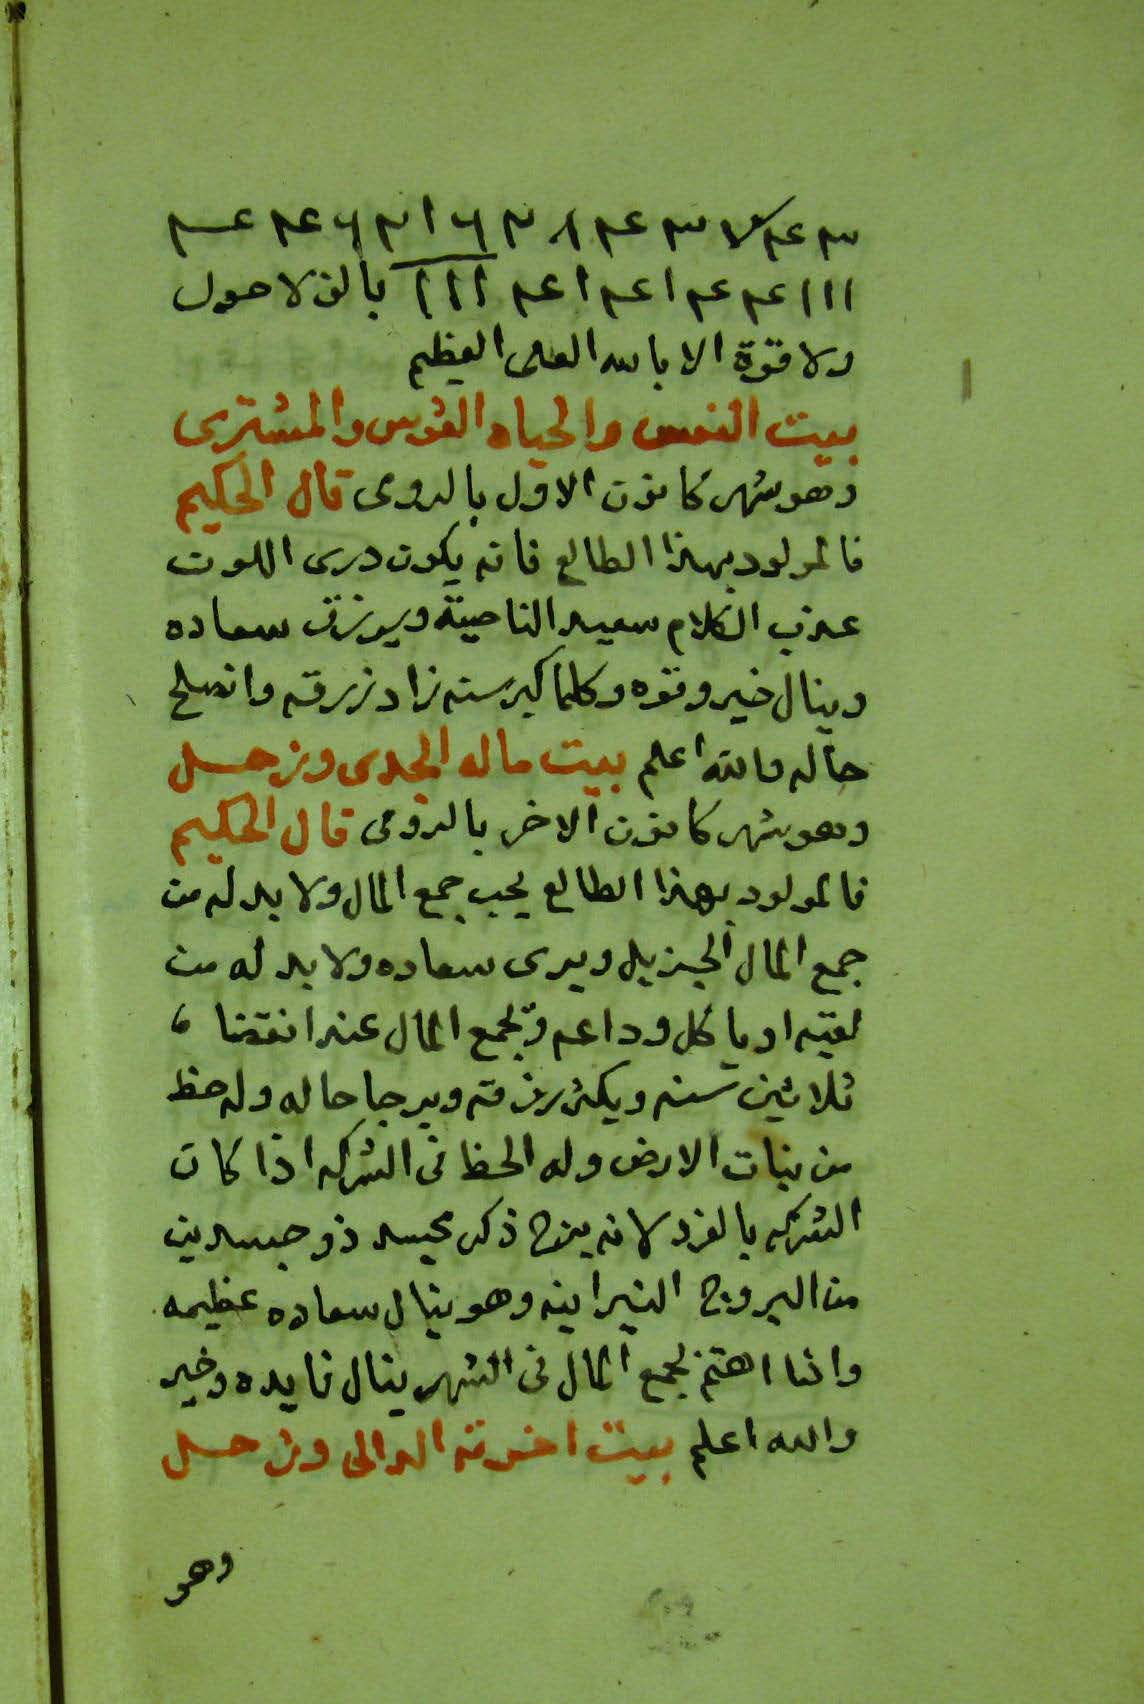 ااا عم عم اعم اعم ااا بالف لا حول
ولا قوة الا بالله العلى العظيم
بيت النفس والحياه القوس والمشترى
وهو شهر كانون الاول بالرومى قال الحكيم
فالمولود بهذا الطالع فانه يكون درى اللون
عذب الكلام سعيد الناصية ويرزق سعاده
وينال خير وقوه وكلما كبر سنه زاد رزقه وانصلح
حاله والله اعلم بيت ماله الجدى وزحل
وهو شهر كانون الاخر بالرومى قال الحكيم
فالمولود بهذا الطالع يحب جمع المال ولا بد له من
جمع المال الجزيل ويرى سعاده ولا بد له من
لقيه او ياكل وداعه ويجمع المال عند انقضاء
ثلاثين سنه ويكثر رزقه ويرجا حاله وله حظ
من بنات الارض وله الحظ فى الشركه اذا كان
الشركه بالفرد لانه برج ذكر ذو جسدين
من البروج وهو ينال سعاده عظيمه
واذا اهتم لجمع المال فى الشهر ينال فايده وخير
والله اعلم بيت اخوته الدالى وزحل
وهو